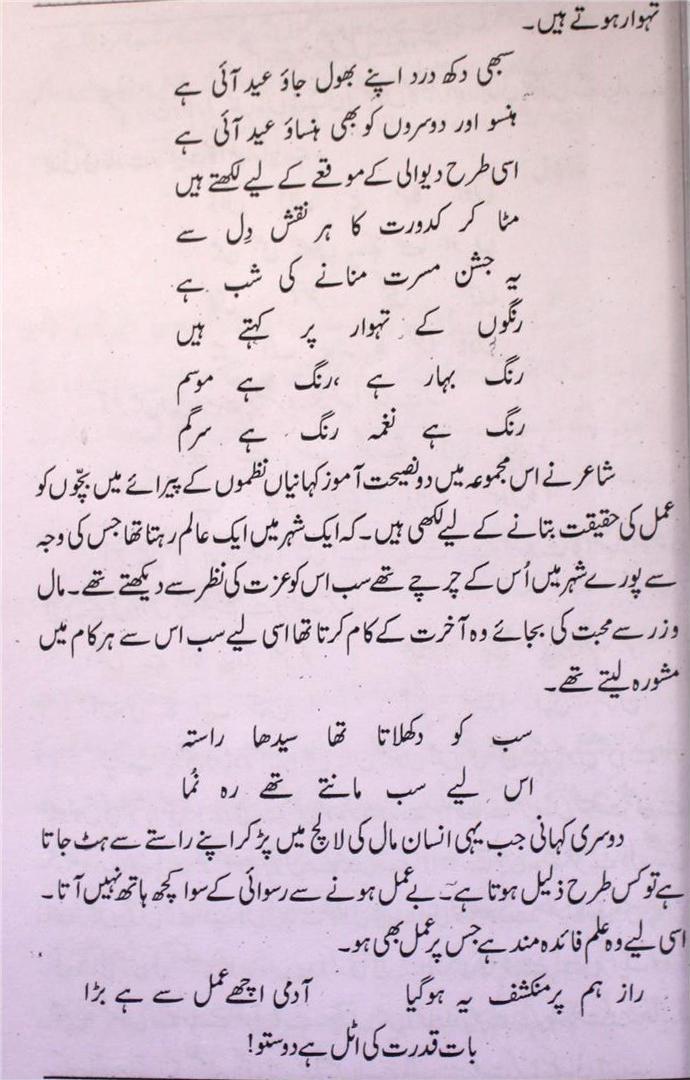 تہوار ہوتے ہیں۔
سبھی دکھ درد اپنے بھول جاؤ عید آئی ہے
ہنسو اور دوسروں کو بھی ہنساؤ عید آئی ہے
اسی طرح دیوالی کے موقعے کے لیے لکھتے ہیں
مٹا کر کدورت کا ہر نقش دِل سے
یہ جشن مسرت منانے کی شب ہے
رنگوں کے تہوار پر کہتے ہیں
رنگ بہار ہے ،رنگ ہے موسم
رنگ ہے نغمہ رنگ ہے سرگم
شاعر نے اس مجموعہ میں دو نصیحت آموز کہانیاں نظموں کے پیرائے میں بچّوں کو
عمل کی حقیقت بتانے کے لیے لکھی ہیں۔ کہ ایک شہر میں ایک عالم رہتا تھا جس کی وجہ
سے پورے شہر میں اُس کے چرچے تھے سب اس کو عزت کی نظر سے دیکھتے تھے۔ مال
وزر سے محبت کی بجائے وہ آخرت کے کام کرتا تھا اسی لیے سب اس سے ہر کام میں
مشورہ لیتے تھے۔
سب کو دکھلاتا تھا سیدھا راستہ
اس لیے سب مانتے تھے رہ نُما
دوسری کہانی جب یہی انسان مال کی لالچ میں پڑ کر اپنے راستے سے ہٹ جاتا
ہے تو کس طرح ذلیل ہوتا ہے۔ بے عمل ہونے سے رسوائی کے سوا کچھ ہاتھ نہیں آتا۔
اسی لیے وہ علم فائدہ مند ہے جس پر عمل بھی ہو۔
راز ہم پر منکشف یہ ہوگیا آدمی اچھے عمل سے ہے بڑا
بات قدرت کی اٹل ہے دوستو!